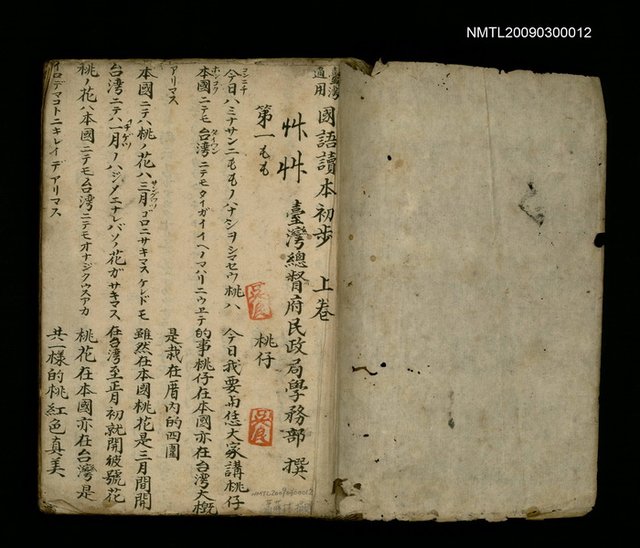 NMTL20090300012
臺灣適用 國語讀本初步 上卷
艸艸 臺灣總督府民政局學務部 撰
第一 もも 桃仔
今日ハミナサンニモモノハナシヲシマセウ桃ハ
コンニチ
今日我要與恁大家講桃仔
本國ニテモ台湾ニテモタイガイイヘノマハリニウヱテ
ホンコク タイワン
的事桃仔在本國亦在台湾大概
アリマス
是栽在厝内的四圍
本國ニテハ桃ノ花ハ三月ゴロニサキマスケレドモ
サングワツ
雖然在本國桃花是三月間開
台湾ニテハ一月ノハジメニナレバソノ花ガサキマス
在台湾至正月初就開彼號花
桃ノ花ハ本國ニテモ台湾ニテモオナジクウスアカ
桃花在本國亦在台灣是
イロデマコトニキレイデアリマス
共一樣的桃紅色真美
NMTL20090300012